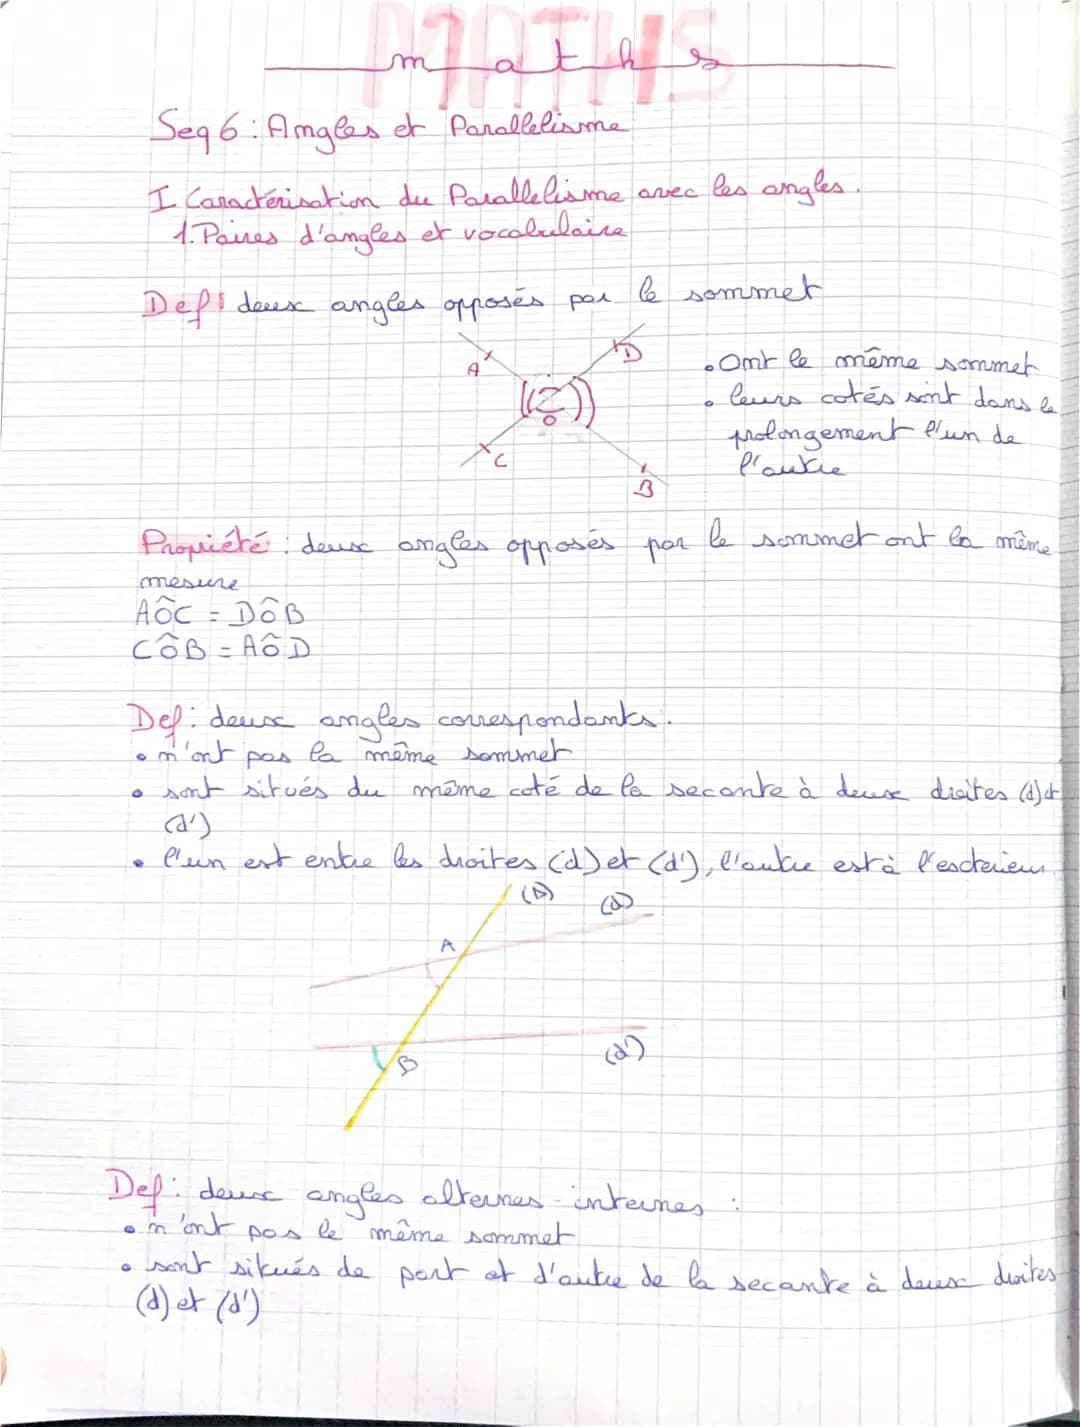 MATHS
maths
Seq 6 : Angles et Parallelisme
I Caractérisation du Parallelisme avec les angles.
1. Paires d'angles et vocabulaire
Def : deux angles opposés par le sommet
A
D
O
C
B
• Ont le même sommet
• leurs cotés sont dans le
prolongement l'un de
l'autre
Propriété : deux angles opposés par le sommet ont la même
mesure
AÔC = DÔB
CÔB = AÔD
Def : deux angles correspondants.
• n'ont pas la même sommet
• sont situés du même coté de la secante à deux droites (d) et
(d')
• l'un est entre les droites (d) et (d'), l'autre est à l'exterieur
(Δ)
(d)
A
B
(d')
Def : deux angles alternes-internes :
• n'ont pas le même sommet
• sont situés de part et d'autre de la secante à deux droites
(d) et (d')